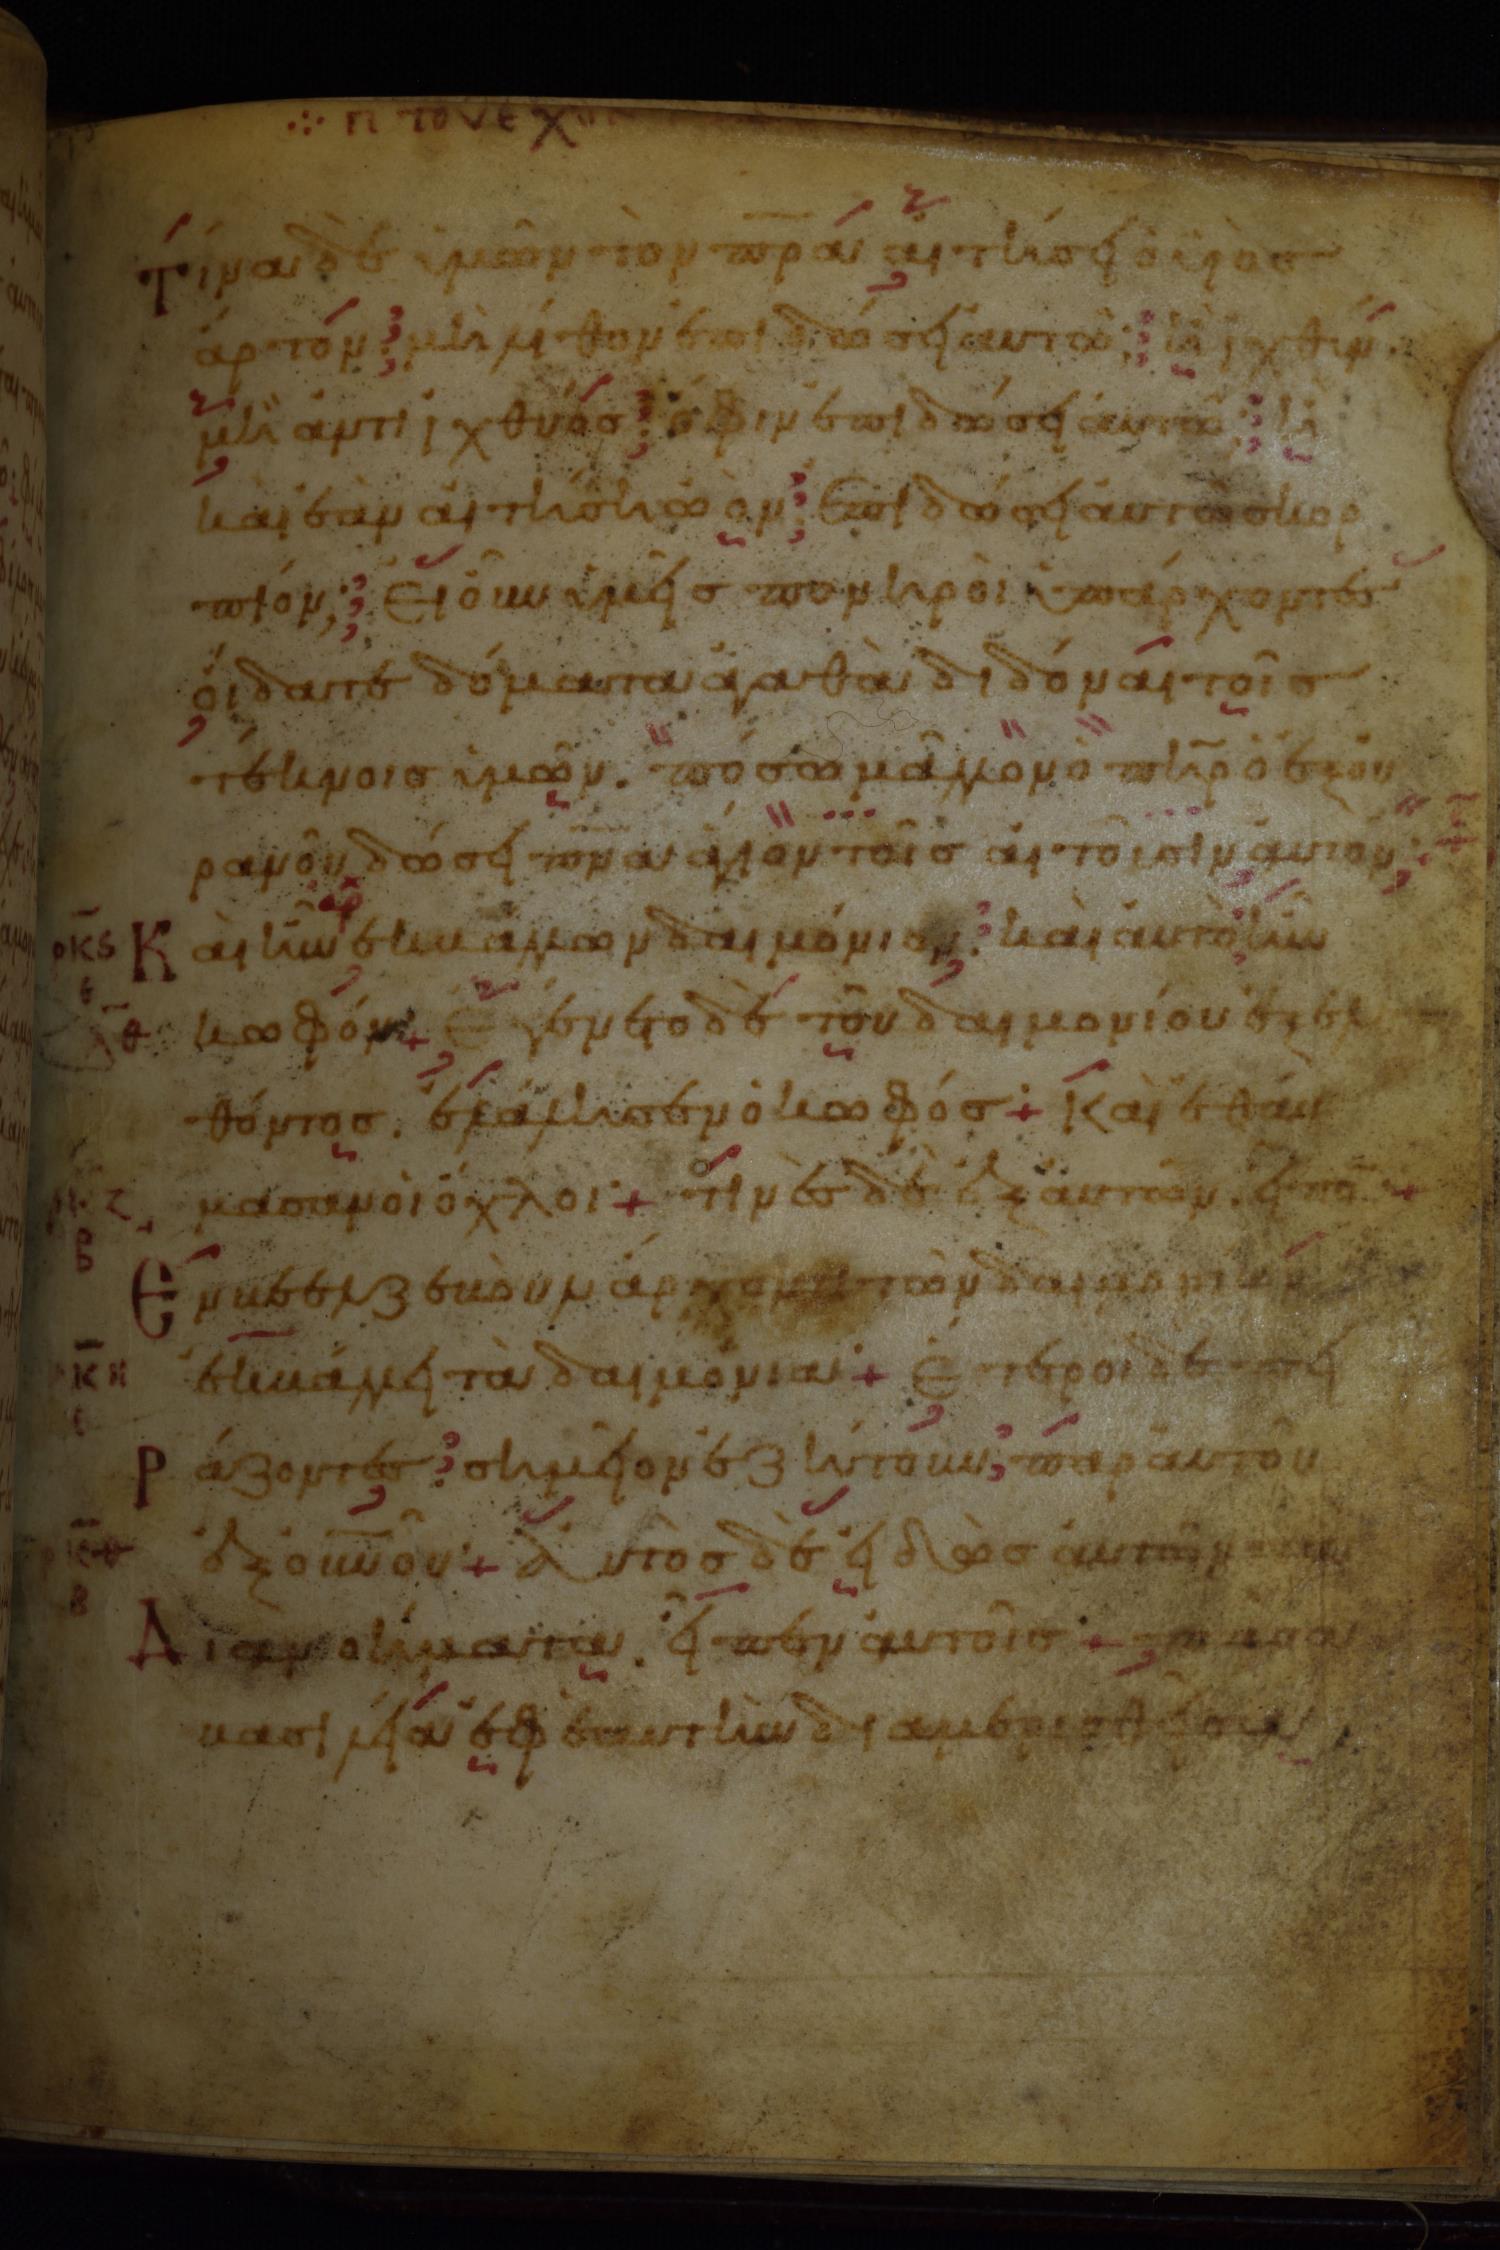 π του εχον
Τίνα δὲ ὑμῶν τὸν πρα αἰτήσει ὁ υἱὸς
ἄρτον; μὴ λίθον ἐπιδώσει αὐτῶ; ἢ ἰχθὺν.
μὴ ἀντι ἰχθύος; ὄφιν ἐπιδώσει αὐτῶ; ἢ
καὶ ἐὰν αἰτήση ὠὸν; ἐπιδώσει αὐτῶ σκορ
πίον; Εἰ οὖν ὑμεῖς πονηροὶ ὑπάρχοντες
οἴδατε δόματα ἀγαθὰ διδόναι τοῖς
τέκνοις ὑμῶν. πόσω μᾶλλον ὁ πηρ ὁ ἐξ οὐ
ρανοῦ δώσει πνα ἅγιον τοῖς αἰτοῦσιν αὐτόν;
ρκϛ Καὶ ἦν ἐκβάλλων δαιμόνιον; καὶ αὐτὸ ἦν
κωφόν + Ἐγένετο δὲ τοῦ δαιμονίου ἐξελ
θόντος. ἐλάλησεν ὁ κωφός + Καὶ ἐθαύ
μασαν οἱ ὄχλοι + τινὲς δὲ ἐξ αὐτῶν. εἶπο +
β
Ἐν βεελζεβοὺλ ἄρχοντι τῶν δαιμονίων
κη ἐκβάλλει τὰ δαιμόνια + Ἕτεροι δὲ πει
Ράζοντες; σημεῖον ἐζήτουν; παρ αὐτοῦ
ἐξ οὐνοῦ + Αὐτὸς δὲ εἰδὼς αὐτῶν τὰ
Διανοήματα. εἶπεν αὐτοῖς + πᾶσα
βασιλεία ἐφ ἑαυτὴν διαμερισθεῖσα